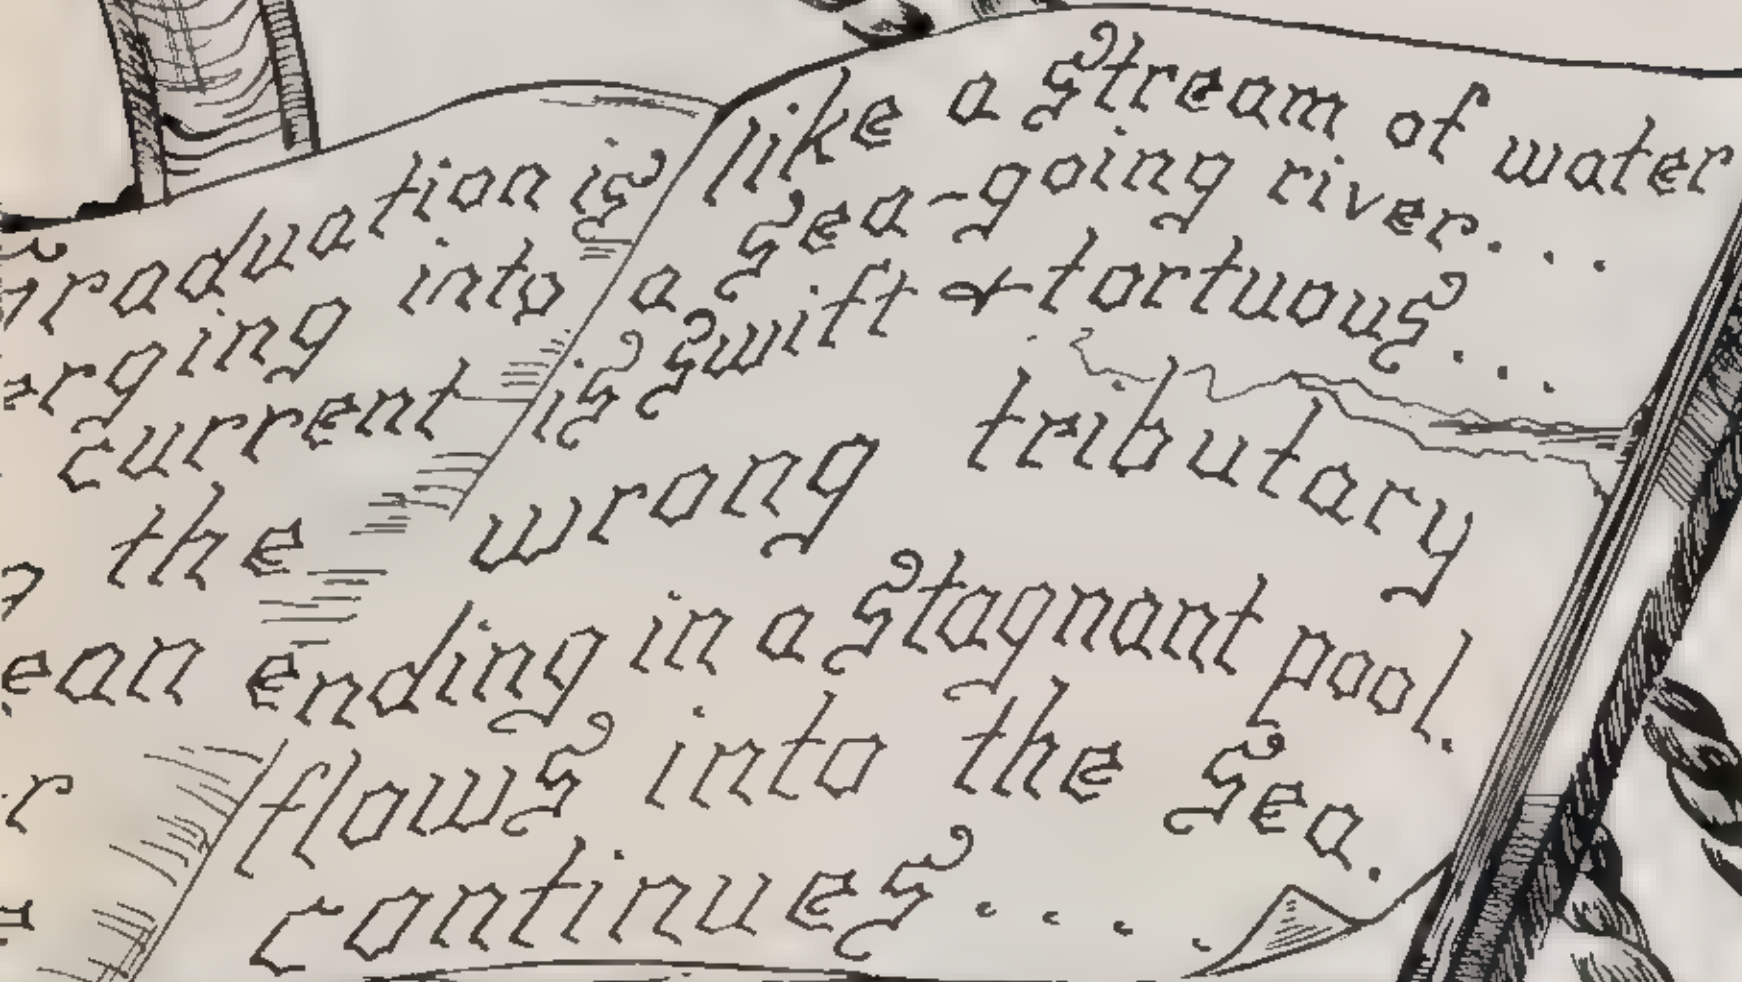 Graduation is like a stream of water
erging into a sea-going river...
current is swift & tortuous...
the wrong tributary
ean ending in a stagnant pool.
r flows into the sea.
continues....